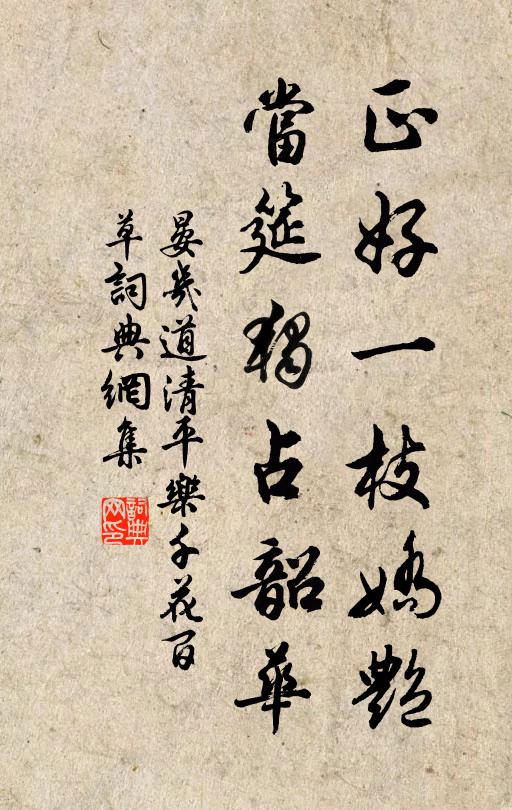 正好一枝嬌艷
當筵獨占韶華
晏幾道清平樂千花百
草詞典網集
詞典
网印